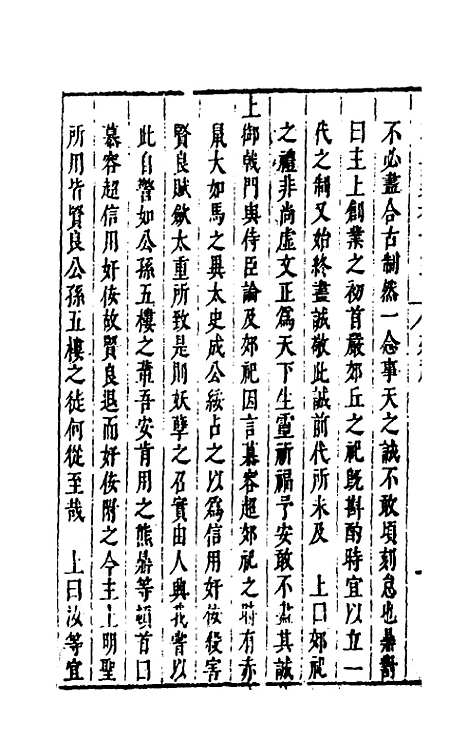 不必盡合古制然一念事天之誠不敢頃刻怠也暴對
曰主上創業之初首嚴郊丘之祀旣斟酌時宜以立一
代之制又始終盡誠敬此誠前代所未及　上曰郊祀
之禮非尚虛文正為天下生靈祈福予安敢不盡其誠
上御戟門與侍臣論及郊祀因言慕容超郊祀之時有赤
鼠大如馬之異太史成公綏占之以為信用奸佞殺害
賢良賦斂太重所致是則妖孽之召實由人興我嘗以
此自警如公孫五樓之輩吾安肯用之熊鼎等頓首曰
慕容超信用奸佞故賢良退而奸佞附之今主上明聖
所用皆賢良公孫五樓之徒何從至哉　上曰汝等宜